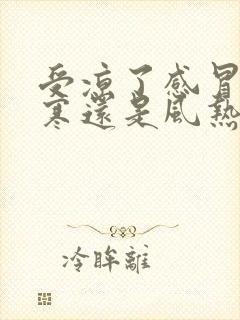 受凉了感冒
寒還是風熱
冷眸離